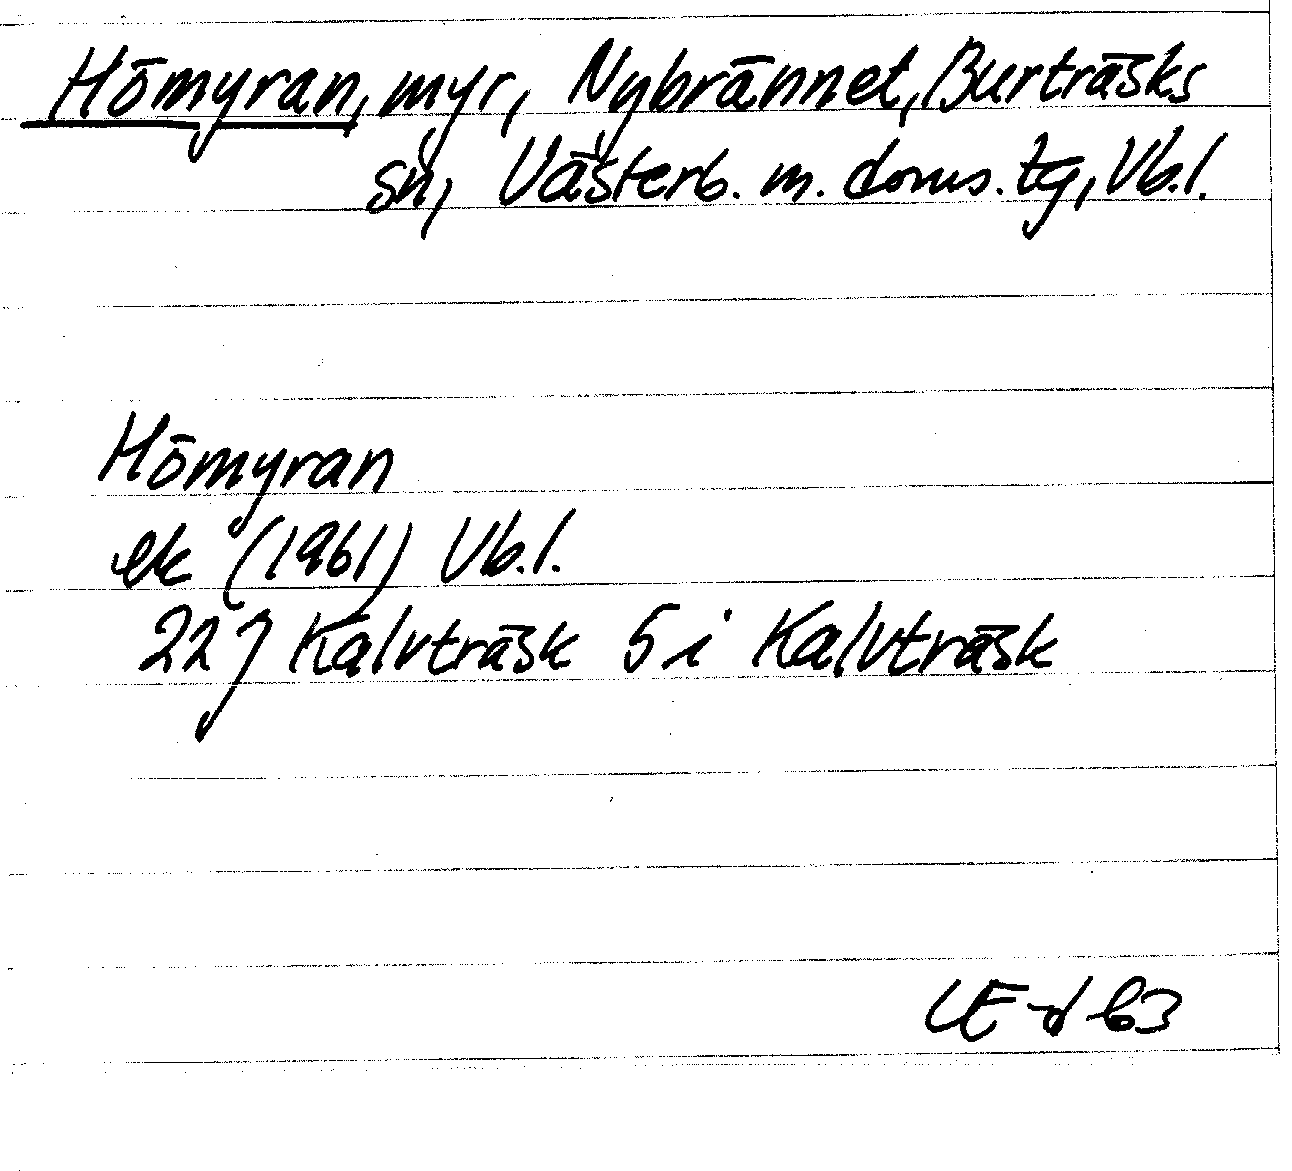 Hömyran, myr, Nybrännet, Burträsks
sn, Västerb. m. doms. tg, Vb.l.
Hömyran
ek (1961) Vb.l.
22 J Kalvträsk 5 i Kalvträsk
LE-d 63